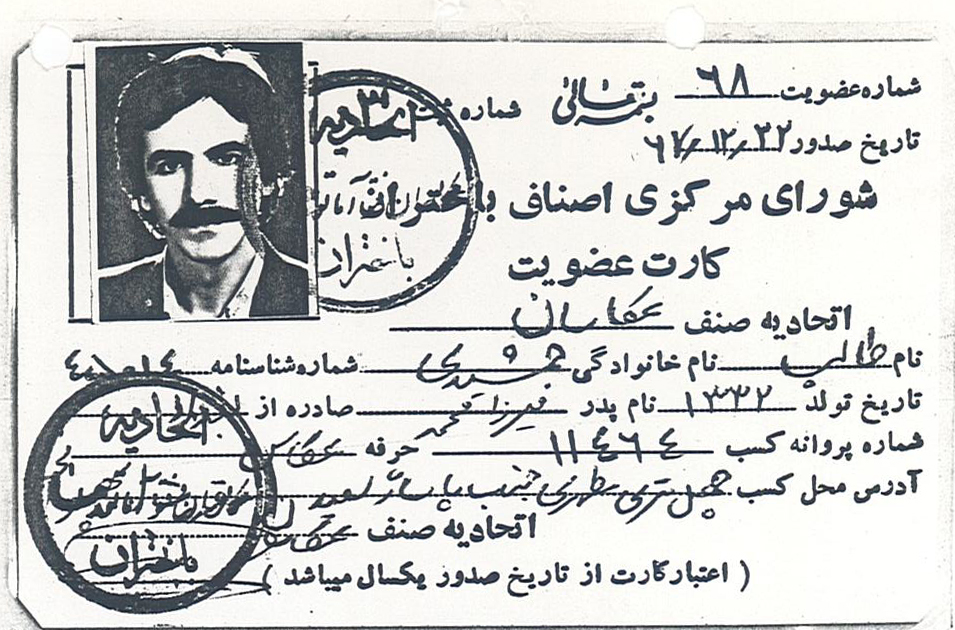 شماره عضویت ۶۸ بسمه‌تعالی شماره
تاریخ صدور ۶۷/۱۲/۲۲
شورای مرکزی اصناف باختران
کارت عضویت
اتحادیه صنف عکاسان
نام طالب نام خانوادگی جمشیدی شماره شناسنامه
تاریخ تولد ۱۳۳۲ نام پدر میرزا محمد صادره از
شماره پروانه کسب ۱۱۴۶۴ حرفه عکاس
آدرس محل کسب چهل متری جنب پاساژ سعید
اتحادیه صنف عکاسان
( اعتبار کارت از تاریخ صدور یکسال میباشد )
اتحادیه
باختران
اتحادیه
باختران